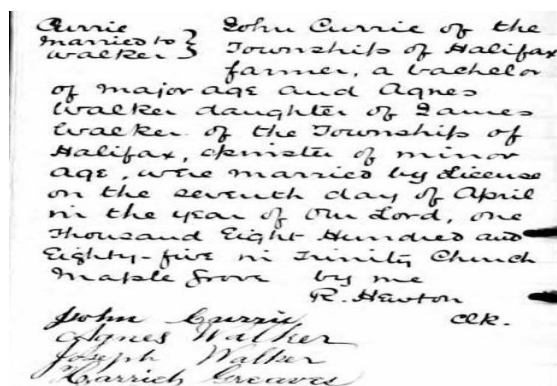 Currie } John Currie of the
married to } Township of Halifax
Walker } farmer, a bachelor
of major age and Agnes
Walker daughter of James
Walker of the Township of
Halifax, spinster of minor
age, were married by License
on the seventh day of April
in the year of Our Lord, one
Thousand Eight Hundred and
Eighty-five in Trinity Church
Maple Grove by me
R. Hewton
Clk.
John Currie
Agnes Walker
Joseph Walker
Greaves